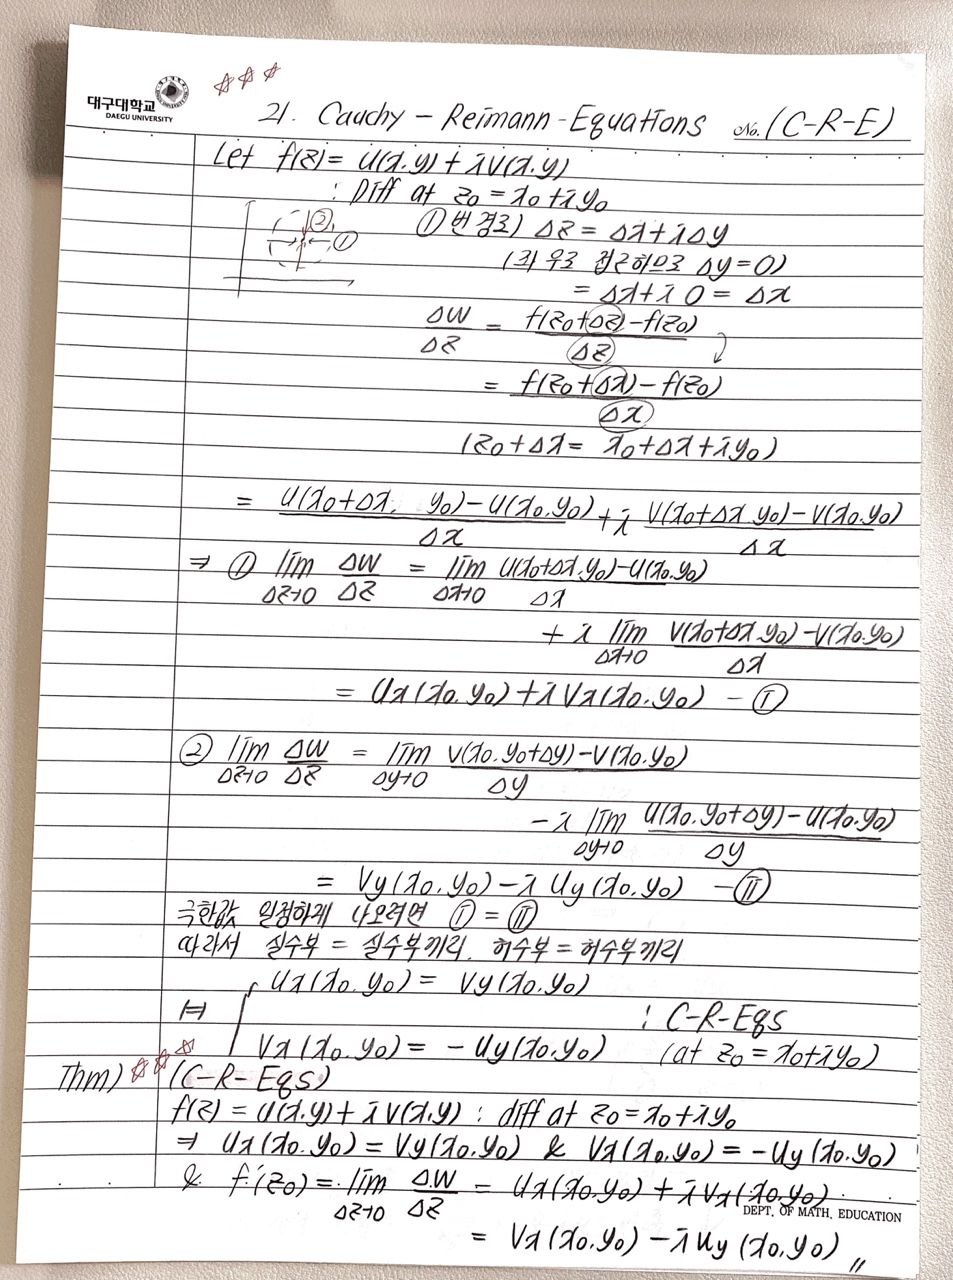 대구대학교
DAEGU UNIVERSITY
☆☆☆
21. Cauchy - Reimann - Equations No. (C-R-E)
Let f(z) = u(x.y) + iv(x.y)
: Diff at z₀ = x₀+iy₀
② ①
①번 경로) Δz = Δx+iΔy
(좌우로 접근하므로 Δy=0)
= Δx+i0 = Δx
ΔW/Δz = (f(z₀+Δz)-f(z₀))/Δz
= (f(z₀+Δx)-f(z₀))/Δx
(z₀+Δx = x₀+Δx+iy₀)
= (u(x₀+Δx, y₀)-u(x₀.y₀))/Δx + i (v(x₀+Δx y₀)-v(x₀.y₀))/Δx
⇒ ① lim Δz→0 ΔW/Δz = lim Δx→0 (u(x₀+Δx.y₀)-u(x₀.y₀))/Δx
+ i lim Δx→0 (v(x₀+Δx.y₀)-v(x₀.y₀))/Δx
= ux(x₀.y₀)+ivx(x₀.y₀) - Ⅰ
② lim Δz→0 ΔW/Δz = lim Δy→0 (v(x₀.y₀+Δy)-v(x₀.y₀))/Δy
- i lim Δy→0 (u(x₀.y₀+Δy)-u(x₀.y₀))/Δy
= vy(x₀.y₀)-i uy(x₀.y₀) - Ⅱ
극한값 일정하게 나오려면 Ⅰ = Ⅱ
따라서 실수부 = 실수부끼리. 허수부 = 허수부끼리
ux(x₀.y₀) = vy(x₀.y₀)
: C-R-Eqs
vx(x₀.y₀) = -uy(x₀.y₀) (at z₀ = x₀+iy₀)
Thm) ☆☆☆ (C-R-Eqs)
f(z) = u(x.y)+iv(x.y) : diff at z₀=x₀+iy₀
⇒ ux(x₀.y₀) = vy(x₀.y₀) & vx(x₀.y₀) = -uy(x₀.y₀)
& f'(z₀) = lim Δz→0 ΔW/Δz = ux(x₀.y₀) + ivx(x₀.y₀)
DEPT. OF MATH. EDUCATION
= vx(x₀.y₀) - iuy(x₀.y₀) //